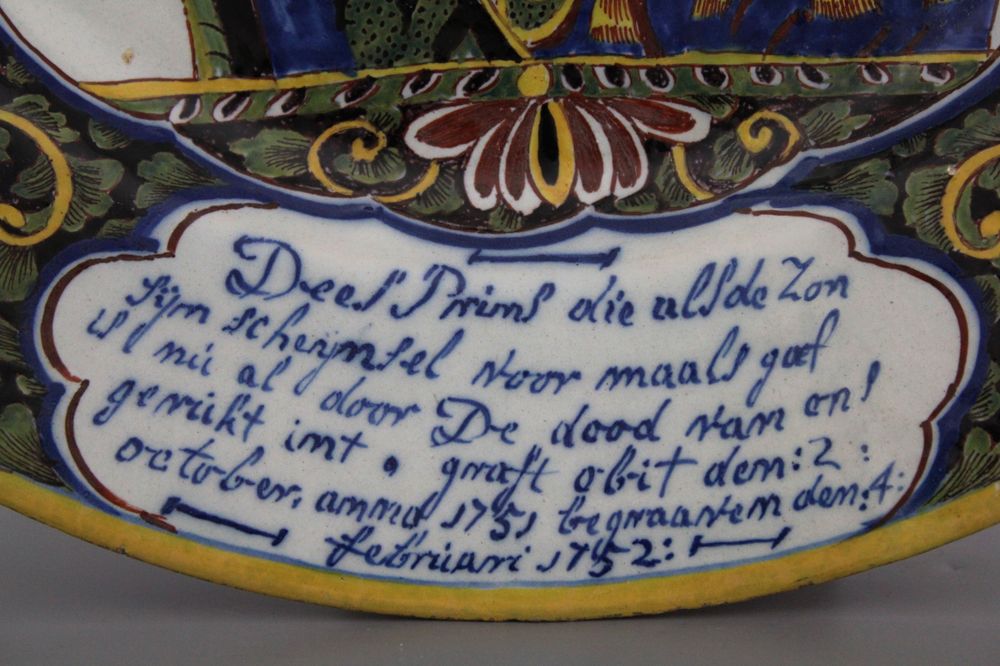 Dees Prins die als de Zon
sijn scheijnsel voor maals gaf
is nu al door De dood van ons
gerukt int . graft obit den:2:
october. anno 1751 begraaven den:4:
februari 1752: